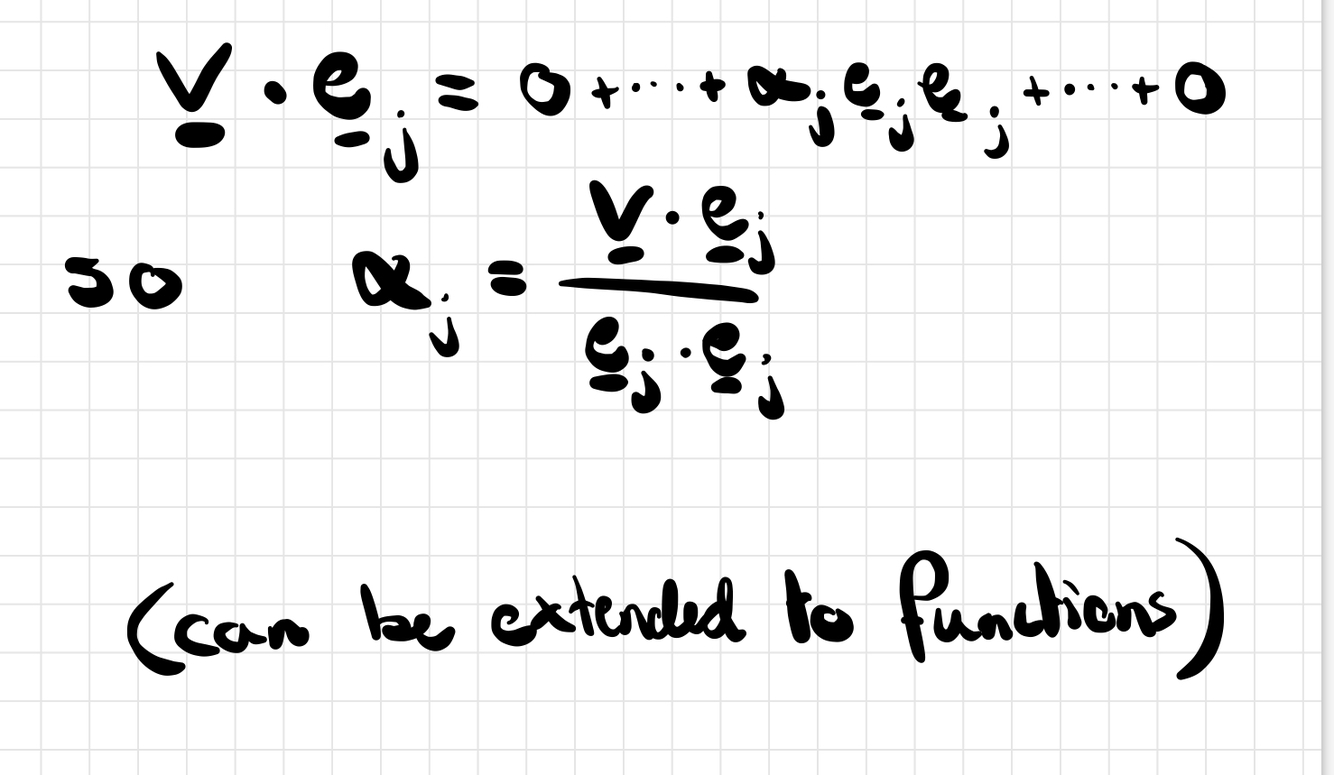 v̲ · e̲ⱼ = 0 + ··· + αⱼ e̲ⱼ e̲ⱼ + ··· + 0
so αⱼ = (v̲ · e̲ⱼ) / (e̲ⱼ · e̲ⱼ)
(can be extended to functions)